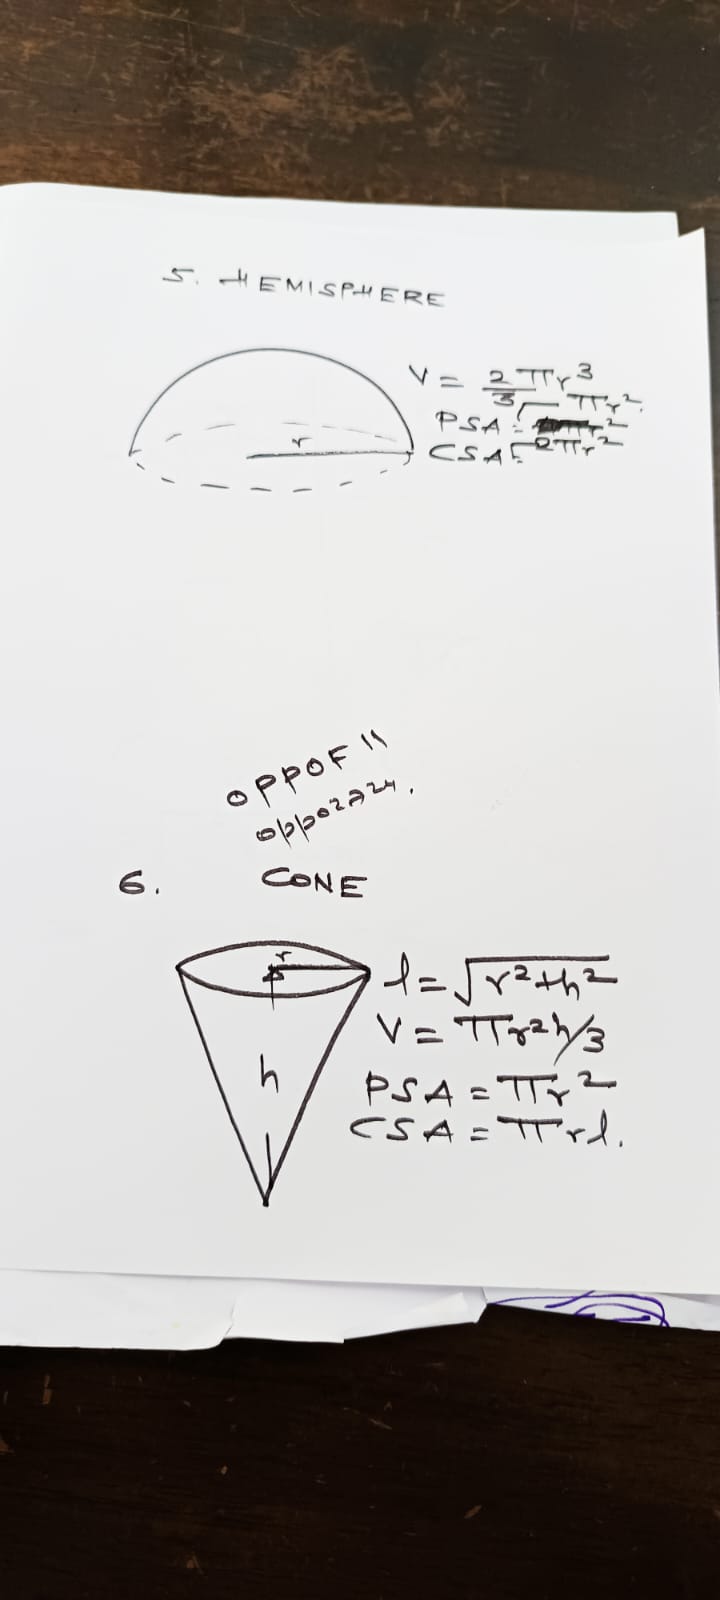 5. HEMISPHERE
V = 2/3 πr³
PSA = πr²
CSA = 2πr²
r
OPPOF11
oppo2A24.
6. CONE
r
l = √r²+h²
V = πr²h/3
h
PSA = πr²
CSA = πrl.